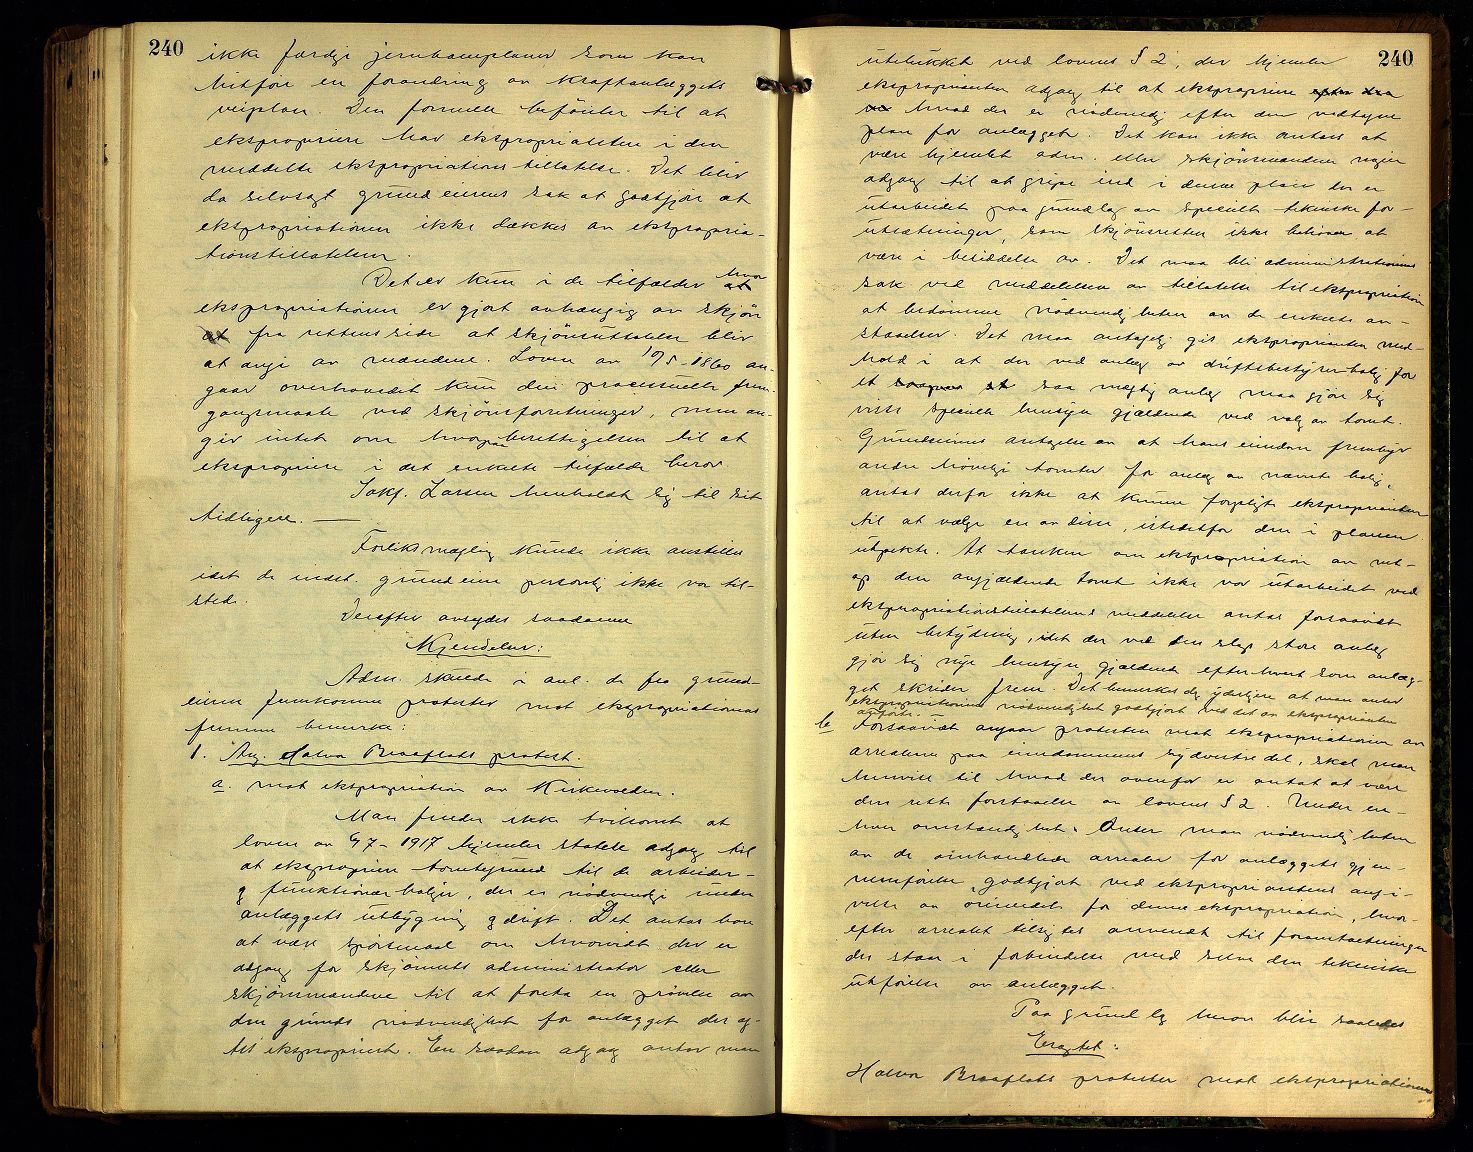 240
ikke færdige jernbaneplaner som kan
medføre en forandring av kraftanlæggets
veiplan. Den formelle beføielse til at
ekspropriere har ekspropriatitene i den
meddelte ekspropriationstillatelse. Det blir
da selvsagt grundeiernes sak at godtgjøre at
ekspropriationen ikke dækkes av ekspropria-
tionstillatelsen.
Det er kun i de tilfælder hvor
ekspropriationen er gjort avhængig av skjøn
fra rettens side at skjønsuttalelse blir
at avgi av mændene. Loven av 10/5-1860 an-
gaar overhovedet kun den processuelle frem-
gangsmaate ved skjønsforretninger, men an-
gir intet om hvorpaa berettigelsen til at
ekspropriere i det enkelte tilfælde beror
Sakf. Larsen henholdt sig til sit
tidligere. —
Forliksmægling kunde ikke anstilles
idet de indst. grundeiere personlig ikke var til-
stede.
Derefter avsagdes saadanne
Kjendelser:
Adm. skulde i anl. de fra grund-
eierne fremkomne protester mot ekspropriationens
fremme bemerke:
1. Ang. Halvor Braaflats protest.
a. mot ekspropriation av Kirkevolden.
Man finder ikke tvilsomt at
loven av 4/7-1917 hjemler statelt adgang til
at ekspropriere tomtegrund til de arbeider-
og funktionærboliger, der er nødvendige under
anlæggets utbygning og drift. Det antas kun
at være spørsmaal om hvorvidt der er
adgang for skjønnets administrator eller
skjønsmændene til at foreta en prøvelse av
den grunds nødvendighet for anlægget der ag-
tes ekspropriert. En saadan adgang antar man
240
utelukket ved lovens § 2, der hjemler
eksproprianten adgang til at ekspropriere efter den
hvad der er nødvendig efter den vedtagne
plan for anlægget. Det kan ikke antas at
være hjemlet adm. eller skjønsmændene nogen
adgang til at gripe ind i denne plan der er
utarbeidet paa grundlag av specielle tekniske for-
utsætninger, som skjønsretten ikke behøver at
være i besiddelse av. Det maa bli administrationens
sak ved meddelelsen av tillatelse til ekspropriation
at bedømme nødvendigheten av de enkelte an-
staaelser. Det maa antagelig gis eksproprianten med-
hold i at der ved anlæg av driftsbestyrerbolig for
et saa mægtig anlæg maa gjøre sig
visse specielle hensyn gjældende ved valg av tomt.
Grundeierens antagelse av at hans eiendom frembyr
andre høvelige tomter for anlæg av nævnte bolig,
antas derfor ikke at kunne forpligte eksproprianten
til at vælge en av disse, istedetfor den i planen
utpekte. At tanken om ekspropriation av net-
op den angjældende tomt ikke var utarbeidet ved
ekspropriationstillatelsens meddelelse antas forsaavidt
uten betydning, idet der ved den slags store anlæg
gjør sig nye hensyn gjældende efterhvert som anlæg-
get skrider frem. Det bemerkes dog yderligere at man anser
ekspropriationens nødvendighet godtgjort ved det av eksproprianten
anførte.
b Forsaavidt angaar protesten mot ekspropriationen av
arealerne paa eiendommens sydvestre del, skal man
henvise til hvad der ovenfor er antat at være
den rette forstaaelse av lovens § 2. Under en-
hver omstændighet anser man nødvendigheten
av de omhandlede arealer for anlæggets gjen-
nemførelse, godtgjort ved ekspropriantens angi-
velse av øiemedet for denne ekspropriation, hvor-
efter arealet tilsigtes anvendt til foranstaltninger
der staar i forbindelse med selve den tekniske
utførelse av anlægget.
Paa grundlag herav blir saaledes
Eragtet:
Halvor Braaflats protester mot ekspropriationens